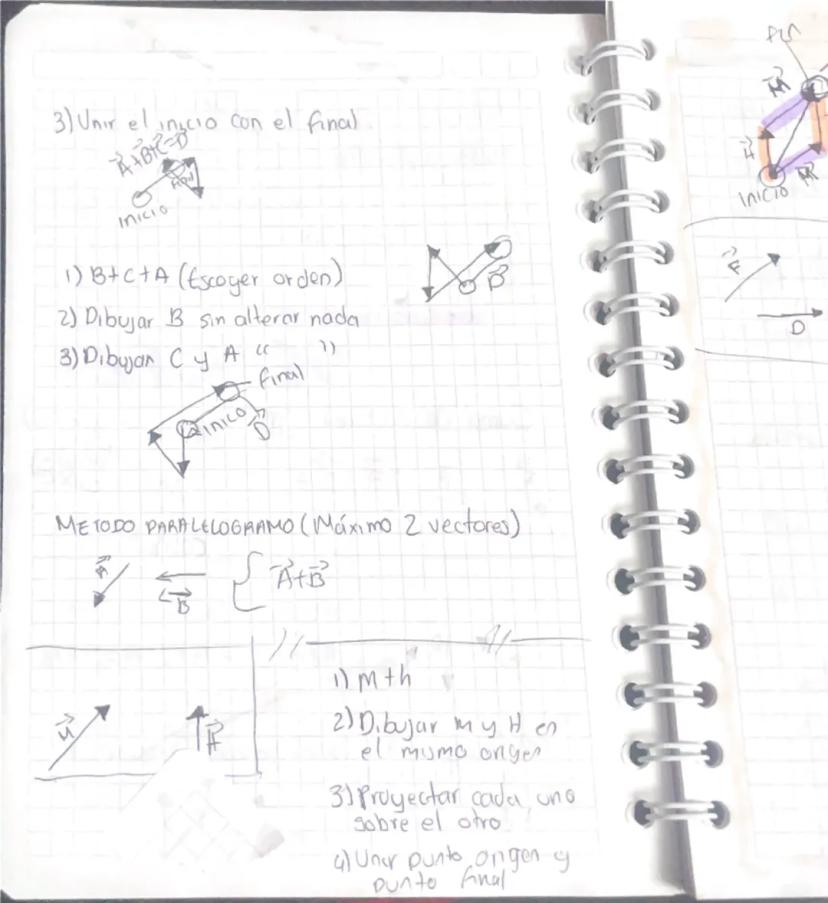 3) Unir el inicio con el final
A+B+C=D
INICIO
1) B+C+A (Escoger orden)
B
2) Dibujar B sin alterar nada
3) Dibujar C y A “ ”
final
INICO
D
METODO PARALELOGRAMO (Máximo 2 vectores)
A
B
A+B
1) M+h
2) Dibujar M y H en
el mismo origen
3) Proyectar cada uno
sobre el otro
4) Unir punto origen y
punto final
M
H
M
H
M
INICIO
F
D